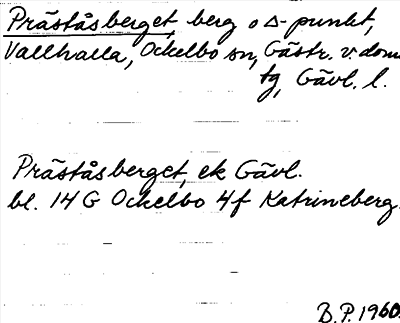 Präståsberget, berg o Δ-punkt,
Vallhalla, Ockelbo sn, Gästr. v. doms
tg, Gävl. l.
Präståsberget, ek Gävl.
bl. 14 G Ockelbo 4f Katrineberg.
B.P. 1960.